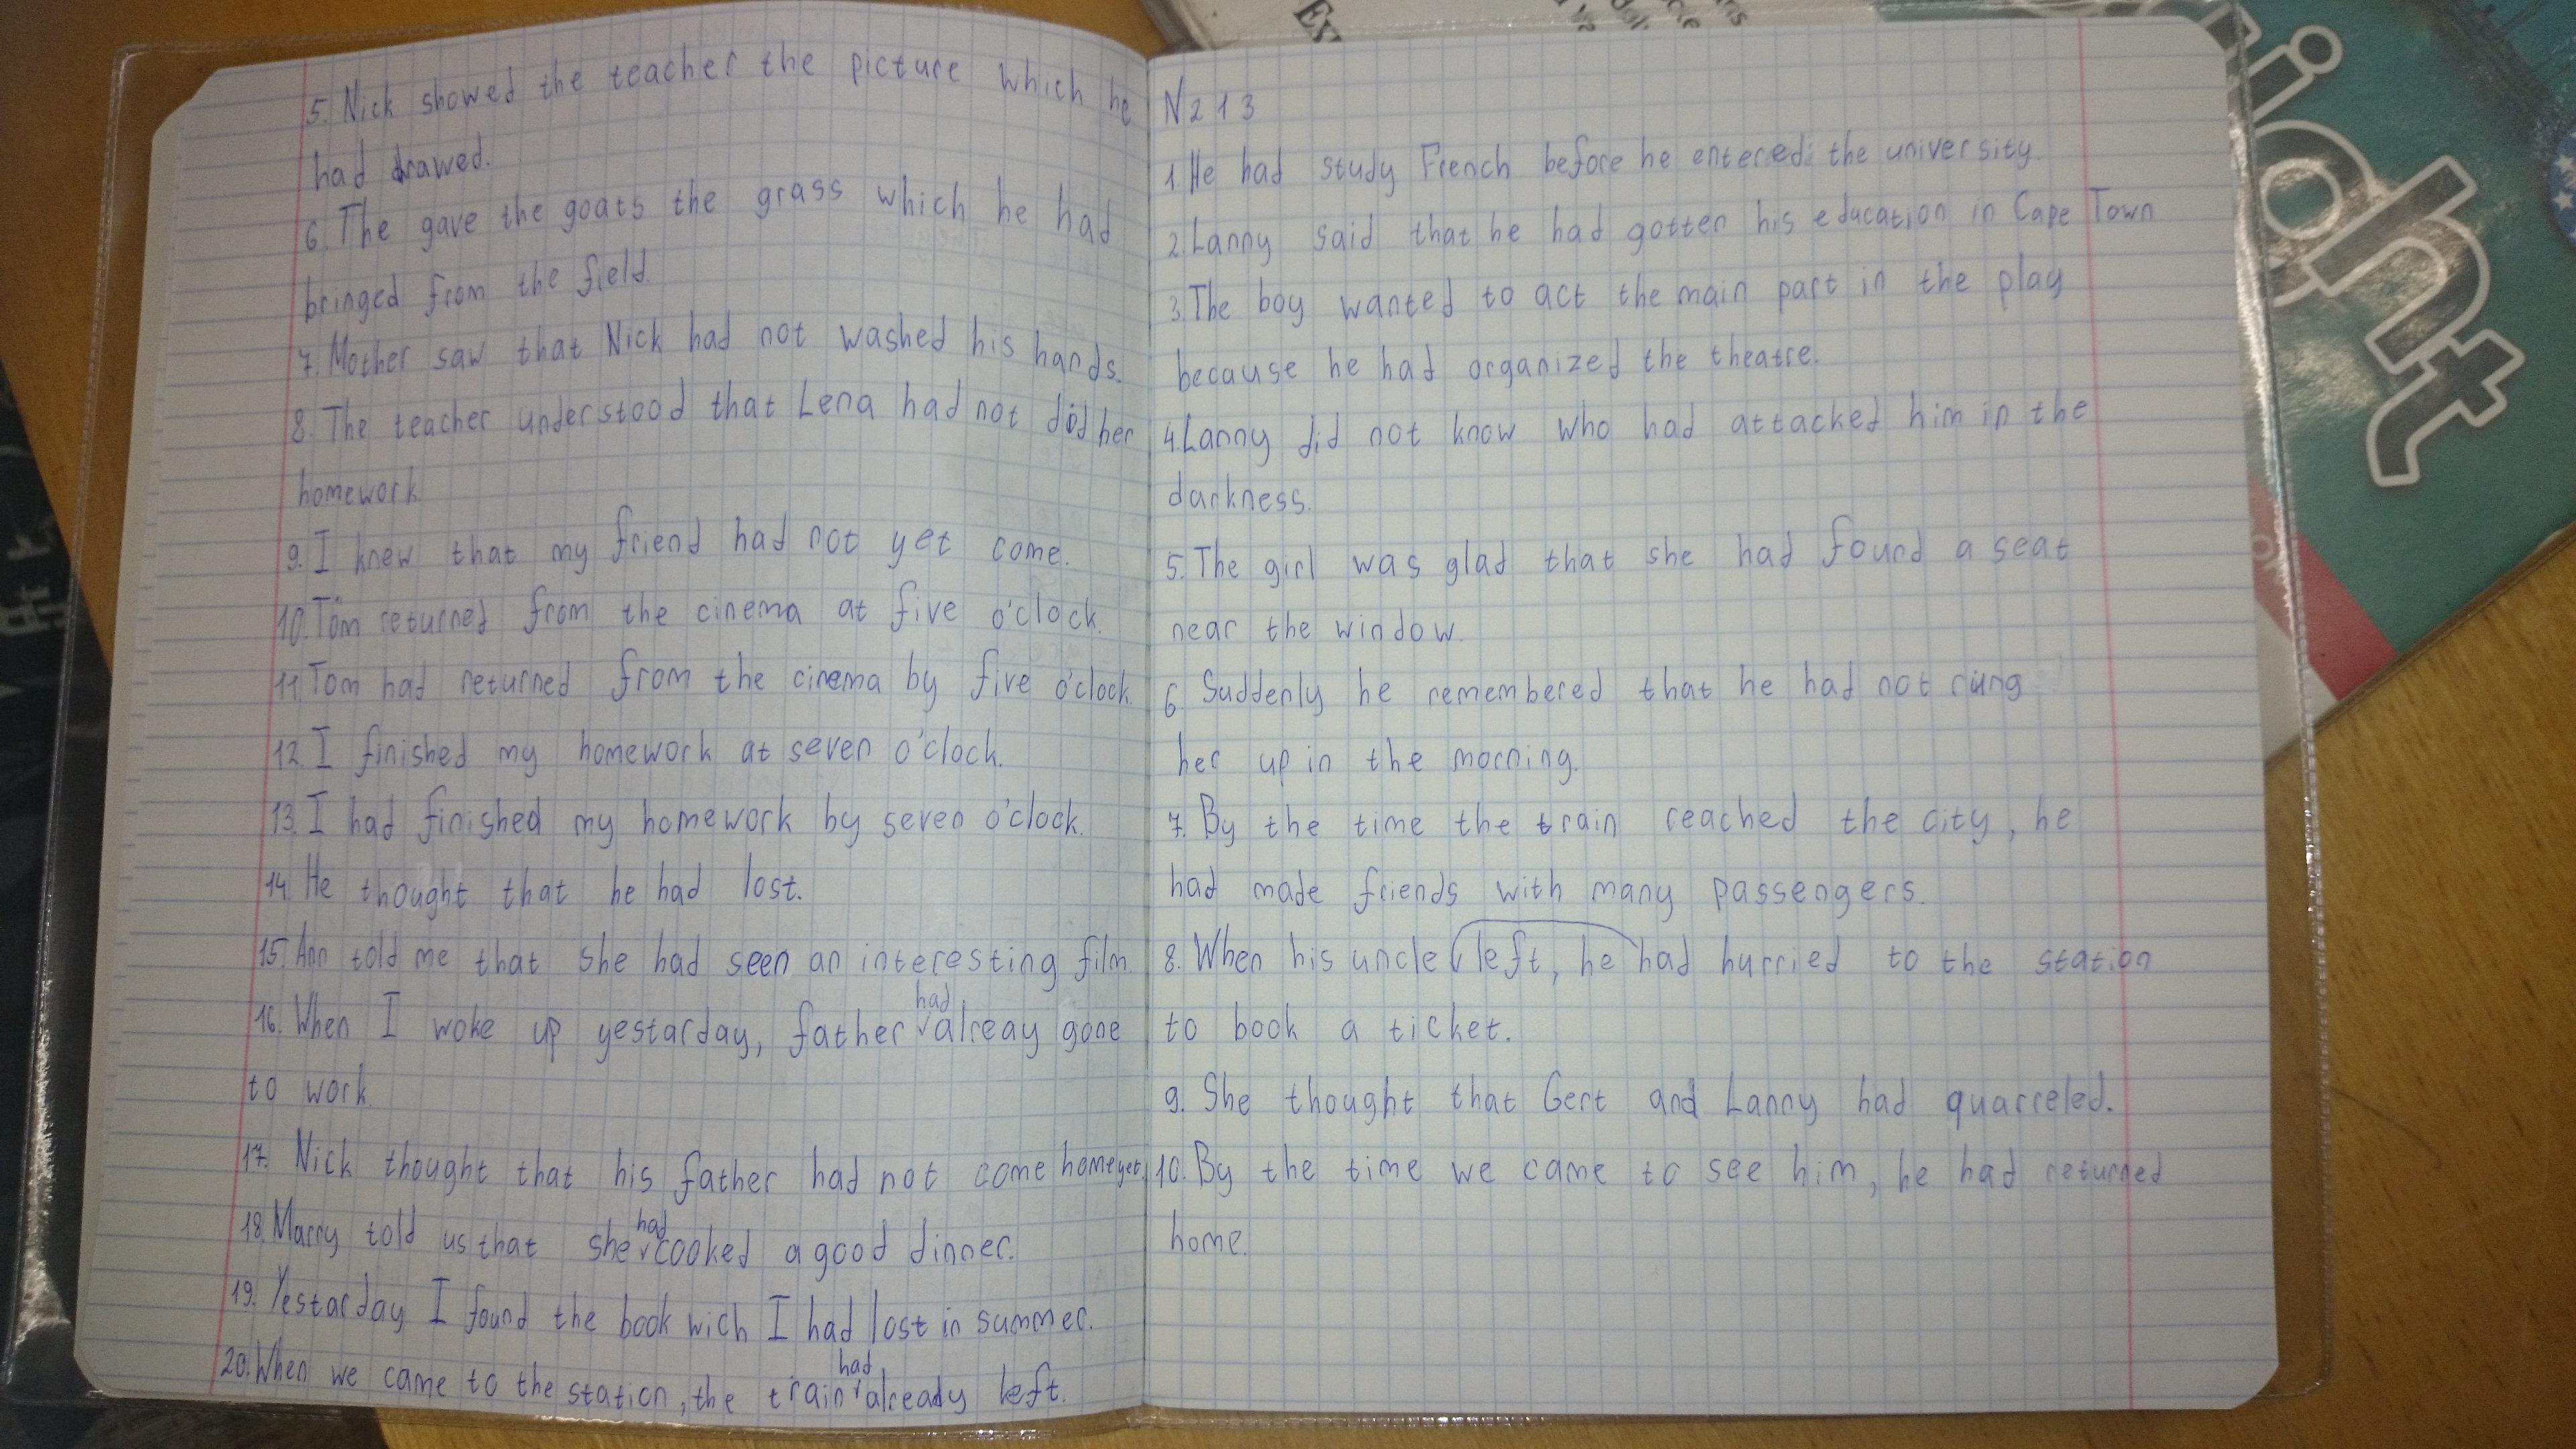 5. Nick showed the teacher the picture which he
had drawed.
6. The gave the goats the grass which he had
bringed from the field.
7. Mother saw that Nick had not washed his hands.
8. The teacher understood that Lena had not did her
homework.
9. I knew that my friend had not yet come.
10. Tom returned from the cinema at five o'clock.
11. Tom had returned from the cinema by five o'clock.
12. I finished my homework at seven o'clock.
13. I had finished my homework by seven o'clock.
14. He thought that he had lost.
15. Ann told me that she had seen an interesting film.
had
16. When I woke up yestarday, father alreay gone
to work.
17. Nick thought that his father had not come home yet.
had
18. Marry told us that she cooked a good dinner.
19. Yestarday I found the book wich I had lost in summer.
had
20. When we came to the station, the train already left.
N213
1. He had study French before he entered the university.
2. Lanny said that he had gotten his education in Cape Town
3. The boy wanted to act the main part in the play
because he had organized the theatre.
4. Lanny did not know who had attacked him in the
darkness.
5. The girl was glad that she had found a seat
near the window.
6. Suddenly he remembered that he had not rung
her up in the morning.
7. By the time the train reached the city, he
had made friends with many passengers.
8. When his uncle left, he had hurried to the station
to book a ticket.
9. She thought that Gert and Lanny had quarreled.
10. By the time we came to see him, he had returned
home.